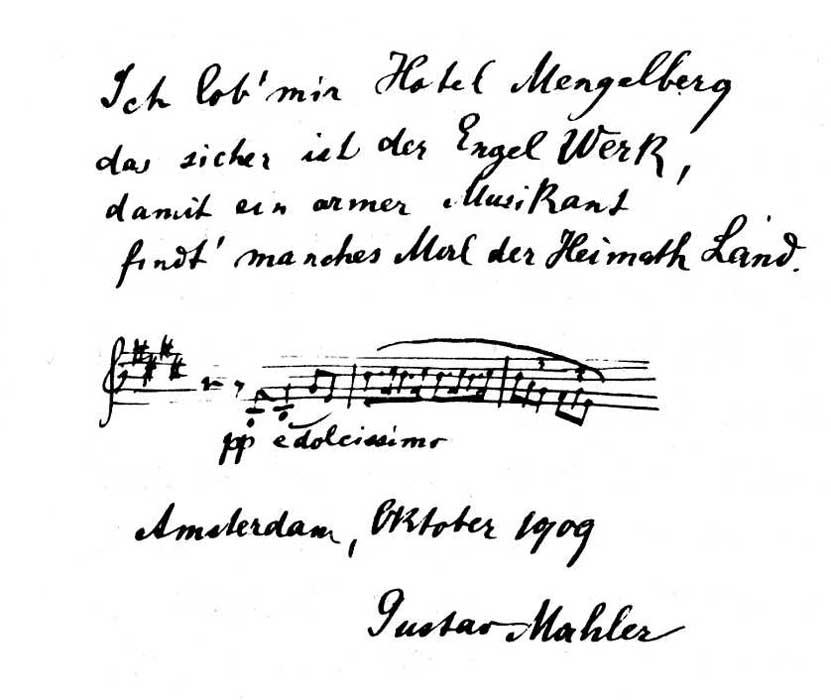 Ich lob' mir Hotel Mengelberg
das sicher ist der Engel Werk,
damit ein armer Musikant
findt' manches Mal der Heimath Land.
pp e dolcissimo
Amsterdam, Oktober 1909
Gustav Mahler